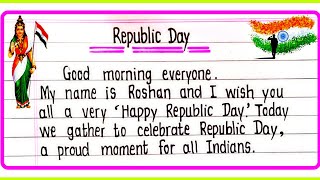 Republic Day
Good morning everyone.
My name is Roshan and I wish you
all a very 'Happy Republic Day.' Today
we gather to celebrate Republic Day,
a proud moment for all Indians.